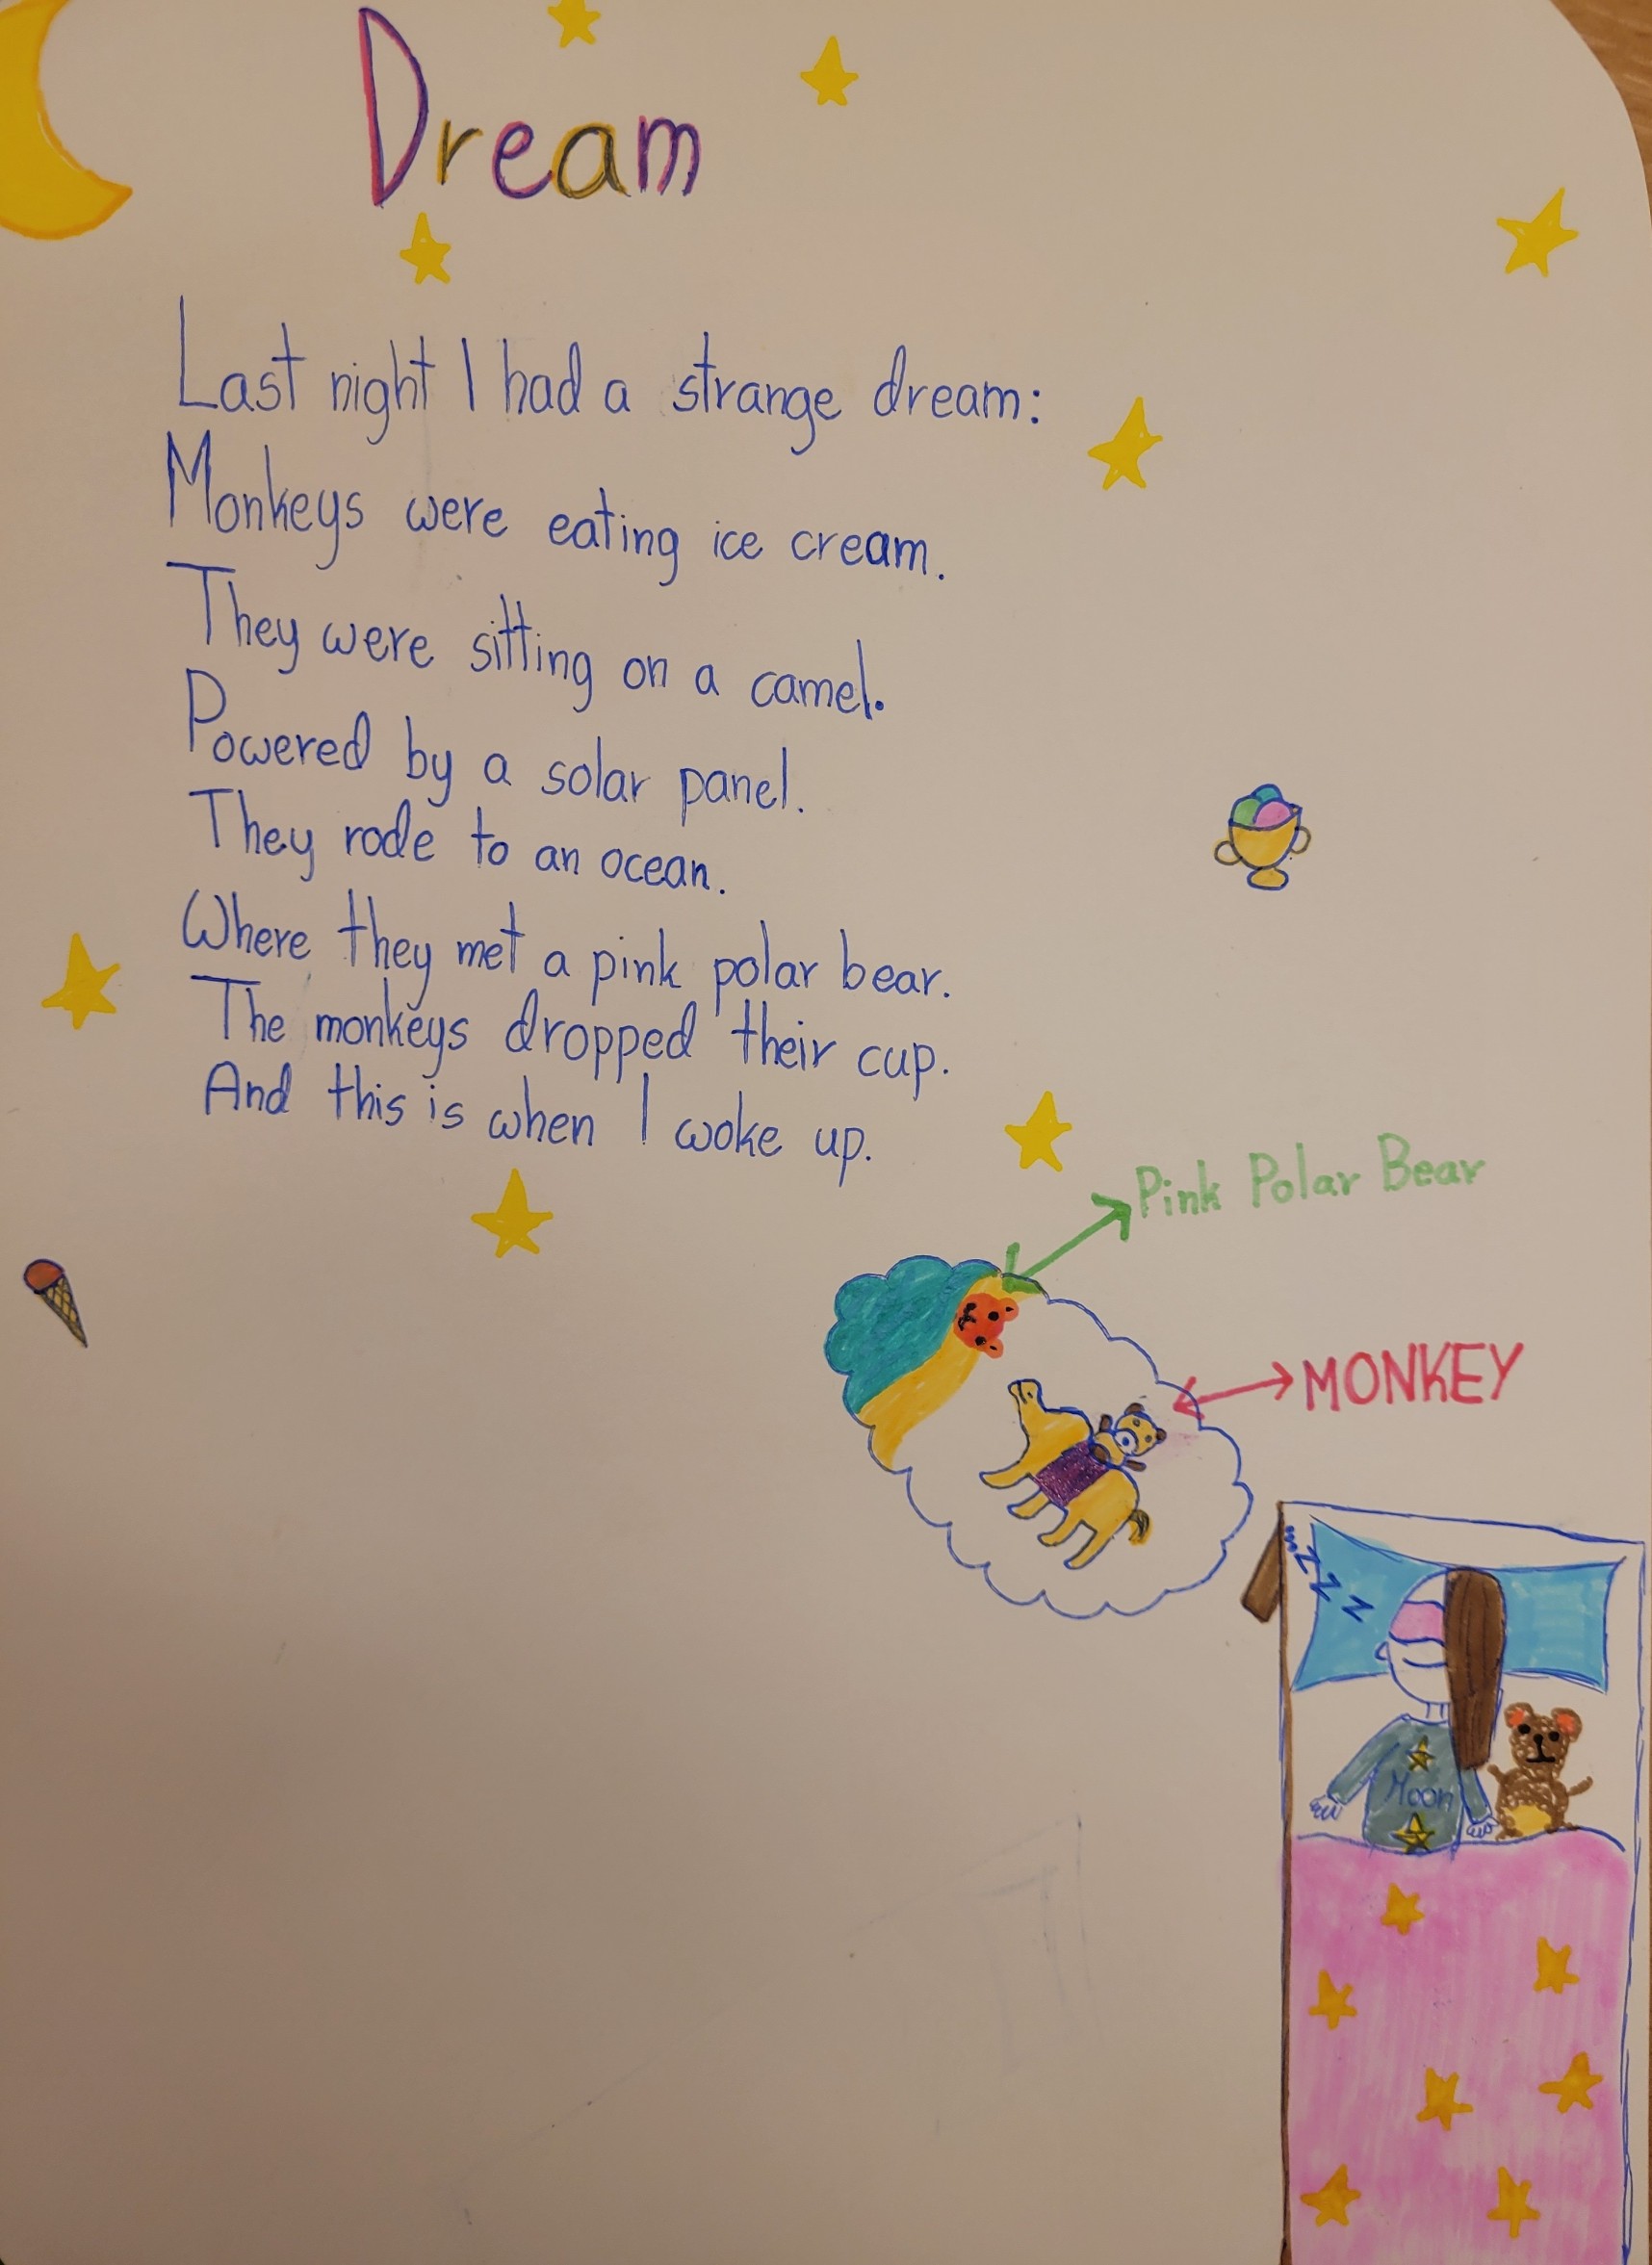 Dream
Last night I had a strange dream:
Monkeys were eating ice cream.
They were sitting on a camel.
Powered by a solar panel.
They rode to an ocean.
Where they met a pink polar bear.
The monkeys dropped their cup.
And this is when I woke up.
Pink Polar Bear
MONKEY
zzz
Moon